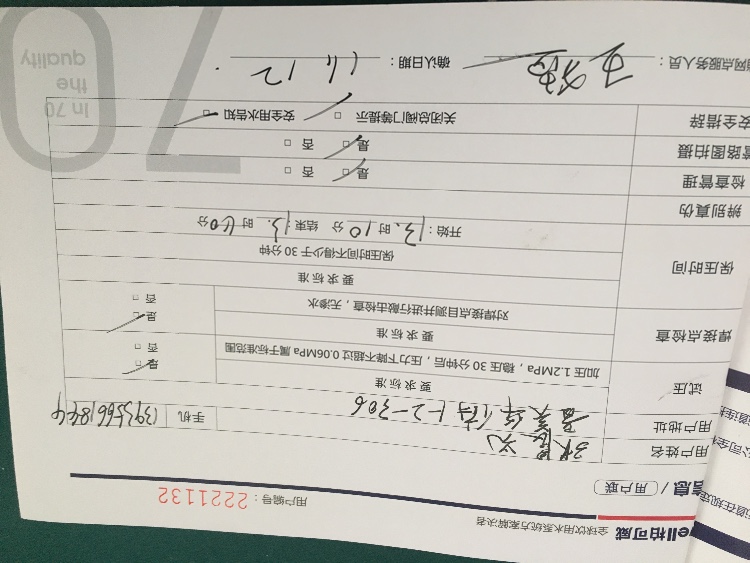 ell柏可威 全球饮用水系统方案解决者
信息 / 用户联 用户编号：2221132
用户姓名
用户地址 1-2-306 手机
试压 要求标准
加压1.2MPa，稳压，30分钟后，压力下降不超过0.06MPa属于标准范围 是 否
焊接点检查 要求标准
对焊接点目测并进行敲击检查，无渗水 是 否
保压时间 要求标准
保压时间不得少于30分钟
开始：13时10分 结束：13时40分
辨别真伪
检查管理 是 否
管路图拍摄 是 否
安全措辞 关闭总阀门等提示 安全用水告知
网点服务人员： 确认日期：11 12
In 70
the
quality
70